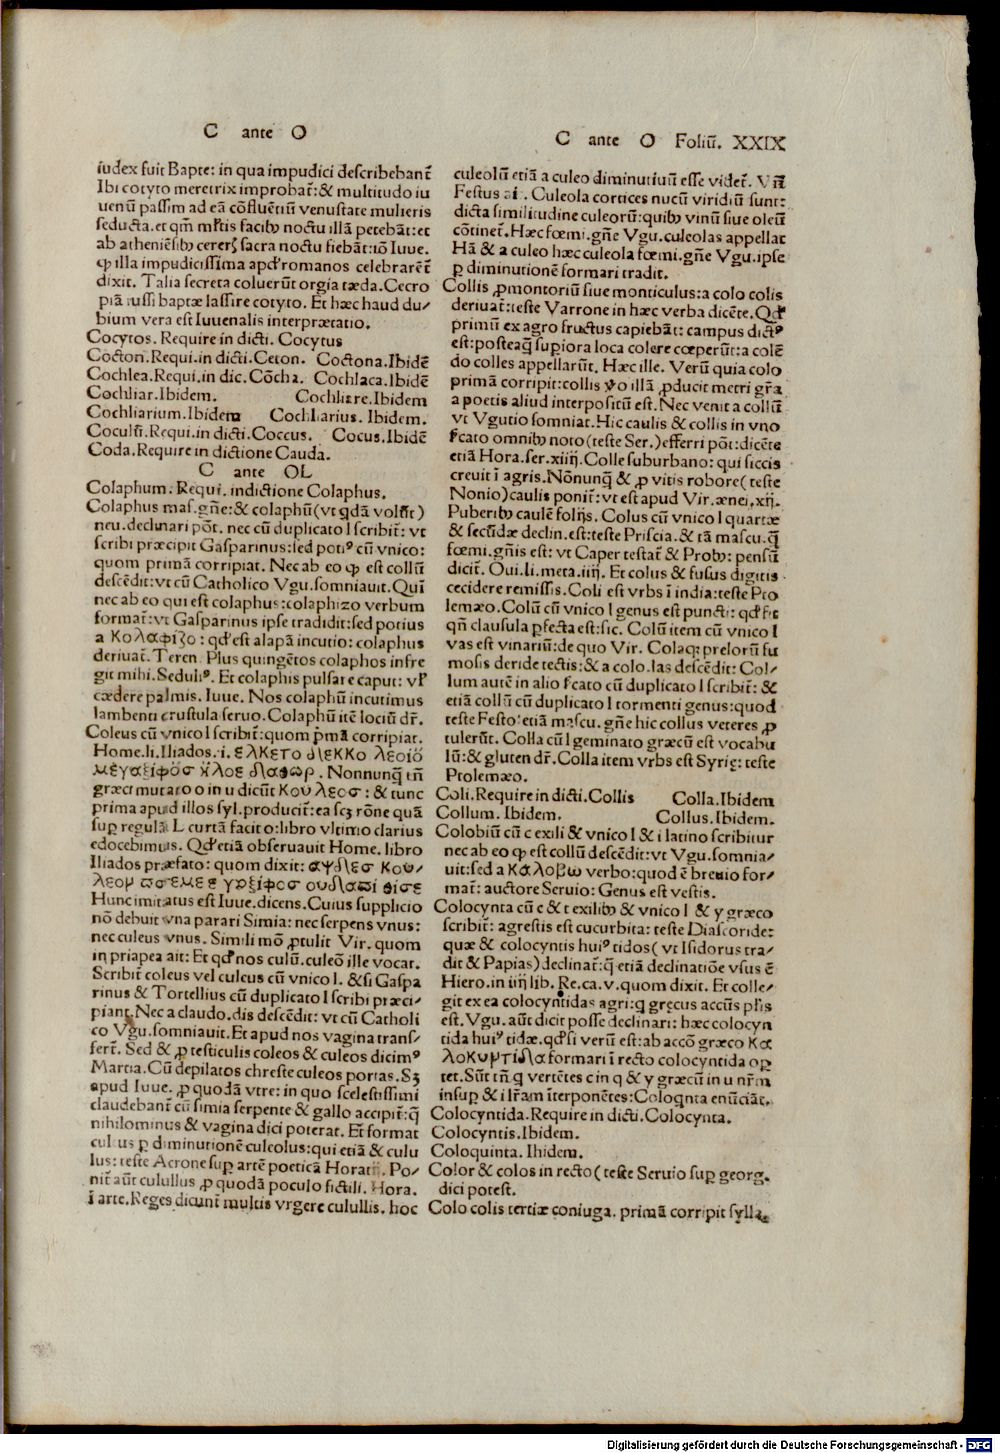 C ante O
iudex fuit Bapte: in qua impudici describebant᷑
Ibi cotyto meretrix improbat᷑:& multitudo iu
uenū passim ad eā cōfluētiū venustate mulieris
seducta.et qm̄ mr̄tis facibꝰ noctu illā petebāt:et
ab atheniēsibꝰ cererꝭ sacra noctu fiebāt:iō Iuue.
ꝙ illa impudicissima apd̕ romanos celebrarēt᷑
dixit. Talia secreta coluerūt orgia tæda.Cecro
piā :ussi baptæ lassire cotyto. Et hæc haud du⸗
bium vera est Iuuenalis interpræratio.
Cocytos. Require in dicti. Cocytus
Cocton.Requi.in dicti.Ceton. Coctona.Ibidē
Cochlea.Requi.in dic.Cōcha. Cochlaca.Ibidē
Cochliar.Ibidem. Cochlitre.Ibidem
Cochliarium.Ibidem Cochliarius. Ibidem.
Coculū.Requi.in dicti.Coccus. Cocus.Ibidē
Coda.Require in dictione Cauda.
C ante OL
Colaphum.Requi. indictione Colaphus.
Colaphus mas.gn̄e:& colaphū(vt qdā volūt)
neu.declinari pōt. nec cū duplicato l scribit᷑: vt
scribi præcipit Gasparinus:sed potiꝰ cū vnico:
quom primā corripiat. Nec ab eo ꝙ est collū
descēdit:vt cū Catholico Vgu.somniauit. Quī
nec ab eo qui est colaphus:colaphizo verbum
format᷑:vt Gasparinus ipse tradidit:sed potius
a κολαφιζο: qd̕ est alapā incutio: colaphus
deriuat᷑. Teren. Plus quingētos colaphos infre
git mihi.Seduliꝰ. Et colaphis pulsare caput: vl̕
cædere palmis. Iuue. Nos colaphū incutimus
lambenti crustula seruo.Colaphū itē lociū dr̄.
Coleus cū vnico l scribit᷑:quom pmā corripiat.
Home.li.Iliados.i. ελκετο δεκκο λεοιο
μεγαξιφοσ χλοε διαφωρ. Nonnunq̄ tn̄
græci mutato o in u dicūt κου λεοσ: & tunc
prima apud illos syl.producit᷑:ea scꝫ rōne quā
sup regulā L curtā facito:libro vltimo clarius
edocebimus. Qd̕ etiā obseruauit Home. libro
Iliados præfato: quom dixit: αψδεσ κου⸗
λεομ ωσεμεε γρξιφοσ ουδαπι θισε
Hunc imitatus est Iuue.dicens.Cuius supplicio
nō debuit vna parari Simia: nec serpens vnus:
nec culeus vnus. Simili mō ꝓtulit Vir. quom
in priapea ait: Et qd̕ nos culū.culeō ille vocat.
Scribit᷑ coleus vel culeus cū vnico l. &si Gaspa
rinus & Tortellius cū duplicato l scribi præci⸗
piant.Nec a claudo.dis descēdit: vt cū Catholi
co Vgu.somniauit.Et apud nos vagina trans⸗
fert᷑. Sed & ꝓ testiculis coleos & culeos dicimꝰ
Martia. Cū depilatos chreste culeos portas.Sꝫ
apud Iuue. ꝓ quodā vtre: in quo scelestissimi
claudebant᷑ cū simia serpente & gallo accipit᷑:q̄
nihilominus & vagina dici poterat. Et format
culeus ꝑ diminutionē culeolus:qui etiā & culu
lus: teste Acrone sup artē poeticā Horatij. Po⸗
nit᷑ aūt culullus ꝓ quodā poculo fictili. Hora.
ī arte.Reges dicunt᷑ multis vrgere culullis. hoc
C ante O Foliū. XXIX
culeolū etiā a culeo diminutiuū esse videt᷑. Vn̄
Festus ai . Culeola cortices nucū viridiū sunt:
dicta similitudine culeorū:quibꝰ vinū siue oleū
cōtinet᷑. Hæc fœmi.gn̄e Vgu.culeolas appellat
Hā & a culeo hæc culeola fœmi.gn̄e Vgu.ipse
ꝑ diminutionē formari tradit.
Collis ꝓmontoriū siue monticulus:a colo colis
deriuat᷑:teste Varrone in hæc verba dicēte.Qd̕
primū ex agro fructus capiebāt: campus dictꝰ
est:posteaq̄ supiora loca colere cœperūt:a colē
do colles appellarūt. Hæc ille. Verū quia colo
primā corripit:collis v̊o illā ꝓducit metri gr̄a
a poetis aliud interpositū est.Nec venit a collū
vt Vgutio somniat.Hic caulis & collis in vno
s̕cato omnibꝰ noto(teste Ser.)efferri pōt:dicēte
etiā Hora.ser.xiiij.Colle suburbano: qui siccis
creuit ī agris.Nōnunq̄ & ꝓ vitis robore(teste
Nonio)caulis ponit᷑: vt est apud Vir.ænei.xij.
Puberibꝰ caulē folijs. Colus cū vnico l quartæ
& secūdæ declin.est:teste Priscia.& tā mascu.q̄
fœmi.gn̄is est: vt Caper testat᷑ & Probꝰ: pensū
dicit᷑. Oui.li.meta.iiij. Et colus & fusus digitis
cecidere remissis.Coli est vrbs ī india:teste Pto
lemæo. Colū cū vnico l genus est puncti: qd̕ fit
qn̄ clausula ꝑfecta est:sic. Colū item cū vnico l
vas est vinariū:de quo Vir. Colaqꝫ prelorū fu
mosis deride tectis:& a colo.las descēdit: Col⸗
lum autē in alio s̕cato cū duplicato l scribit᷑: &
etiā collū cū duplicato l tormenti genus:quod
teste Festo etiā mascu. gn̄e hic collus veteres ꝓ
tulerūt. Colla cū l geminato græcū est vocabu
lū:& gluten dr̄.Colla item vrbs est Syrię: teste
Ptolemæo.
Coli.Require in dicti.Collis Colla.Ibidem
Collum. Ibidem. Collus.Ibidem.
Colobiū cū c exili & vnico l & i latino scribitur
nec ab eo ꝙ est collū descēdit:vt Vgu.somnia⸗
uit:sed a καλοβω verbo:quod ē breuio for⸗
mat᷑: auctore Seruio: Genus est vestis.
Colocynta cū c & t exilibꝰ & vnico l & y græco
scribit᷑: agrestis est cucurbita: teste Diascoride:
quæ & colocyntis huiꝰ tidos(vt Isidorus tra⸗
dit & Papias)declinat᷑:q̄ etiā declinatiōe vsus ē
Hiero.in iiij lib. Re.ca.v.quom dixit. Et colle⸗
git ex ea colocyntidas agri:q̨ gręcus accūs pl̕is
est. Vgu. aūt dicit posse declinari: hæc colocyn
tida huiꝰ tidæ.qd̕ si verū est:ab accō græco κα
λοκυμτιδα formari ī recto colocyntida opꝫ
tet.Sūt tn̄ q̨ vertētes c in q & y græcū in u nr̄m
insup & i lr̄am īterponētes:Coloqnta enūciāt.
Colocyntida.Require in dicti.Colocynta.
Colocyntis.Ibidem.
Coloquinta. Ibidem.
Color & colos in recto(teste Seruio sup georg.
dici potest.
Colo colis tertiæ coniuga. primā corripit sylla.
Digitalisierung gefördert durch die Deutsche Forschungsgemeinschaft - DFG